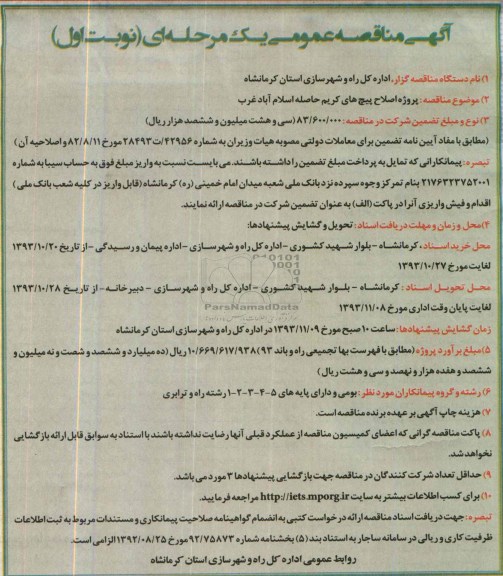 آگهی مناقصه عمومی یک مرحله‌ای (نوبت اول)
۱) نام دستگاه مناقصه گزار: اداره کل راه و شهرسازی استان کرمانشاه
۲) موضوع مناقصه: پروژه اصلاح پیچ های کریم حاصله اسلام آباد غرب
۳) نوع و مبلغ تضمین شرکت در مناقصه: ۸۳/۶۰۰/۰۰۰ (سی و هشت میلیون و ششصد هزار ریال)
(مطابق با مفاد آیین نامه تضمین برای معاملات دولتی مصوبه هیات وزیران به شماره ۴۲۹۵۶/ت۲۸۴۹۳ مورخ ۸۲/۸/۱۱ و اصلاحیه آن)
تبصره: پیمانکارانی که تمایل به پرداخت مبلغ تضمین را داشته باشند، می بایست نسبت به واریز مبلغ فوق به حساب سیبا به شماره
۲۱۷۶۳۲۳۷۵۲۰۰۱ بنام تمرکز وجوه سپرده نزد بانک ملی شعبه میدان امام خمینی (ره) کرمانشاه (قابل واریز در کلیه شعب بانک ملی)
اقدام و فیش واریزی آنرا در پاکت (الف) به عنوان تضمین شرکت در مناقصه ارائه نمایند.
۴) محل و زمان و مهلت دریافت اسناد: تحویل و گشایش پیشنهادها:
محل خرید اسناد: کرمانشاه - بلوار شهید کشوری - اداره کل راه و شهرسازی - اداره پیمان و رسیدگی - از تاریخ ۱۳۹۳/۱۰/۲۰
لغایت مورخ ۱۳۹۳/۱۰/۲۷
محل تحویل اسناد: کرمانشاه - بلوار شهید کشوری - اداره کل راه و شهرسازی - دبیرخانه - از تاریخ ۱۳۹۳/۱۰/۲۸
لغایت پایان وقت اداری مورخ ۱۳۹۳/۱۱/۰۸
ParsNamadData
زمان گشایش پیشنهادها: ساعت ۱۰ صبح مورخ ۱۳۹۳/۱۱/۰۹ در اداره کل راه و شهرسازی استان کرمانشاه
۵) مبلغ برآورد پروژه (مطابق با فهرست بها تجمیعی راه و باند ۹۳) ۱۰/۶۶۹/۶۱۷/۹۳۸ ریال (ده میلیارد و ششصد و شصت و نه میلیون و
ششصد و هفده هزار و نهصد و سی و هشت ریال)
۶) رشته و گروه پیمانکاران مورد نظر: بومی و دارای پایه های ۵-۴-۳-۲-۱ رشته راه و ترابری
۷) هزینه چاپ آگهی بر عهده برنده مناقصه است.
۸) پاکت مناقصه گرانی که اعضای کمیسیون مناقصه از عملکرد قبلی آنها رضایت نداشته باشند با استناد به سوابق قابل ارائه بازگشایی
نخواهد شد.
۹) حداقل تعداد شرکت کنندگان در مناقصه جهت بازگشایی پیشنهادها ۳ مورد می باشد.
۱۰) برای کسب اطلاعات بیشتر به سایت http://iets.mporg.ir مراجعه فرمایید.
تبصره: جهت دریافت اسناد مناقصه ارائه درخواست کتبی به انضمام گواهینامه صلاحیت پیمانکاری و مستندات مربوط به ثبت اطلاعات
ظرفیت کاری و ریالی در سامانه ساجار به استناد بند (۵) بخشنامه شماره ۹۲/۷۵۸۷۳ مورخ ۱۳۹۲/۰۸/۲۵ الزامی است.
روابط عمومی اداره کل راه و شهرسازی استان کرمانشاه